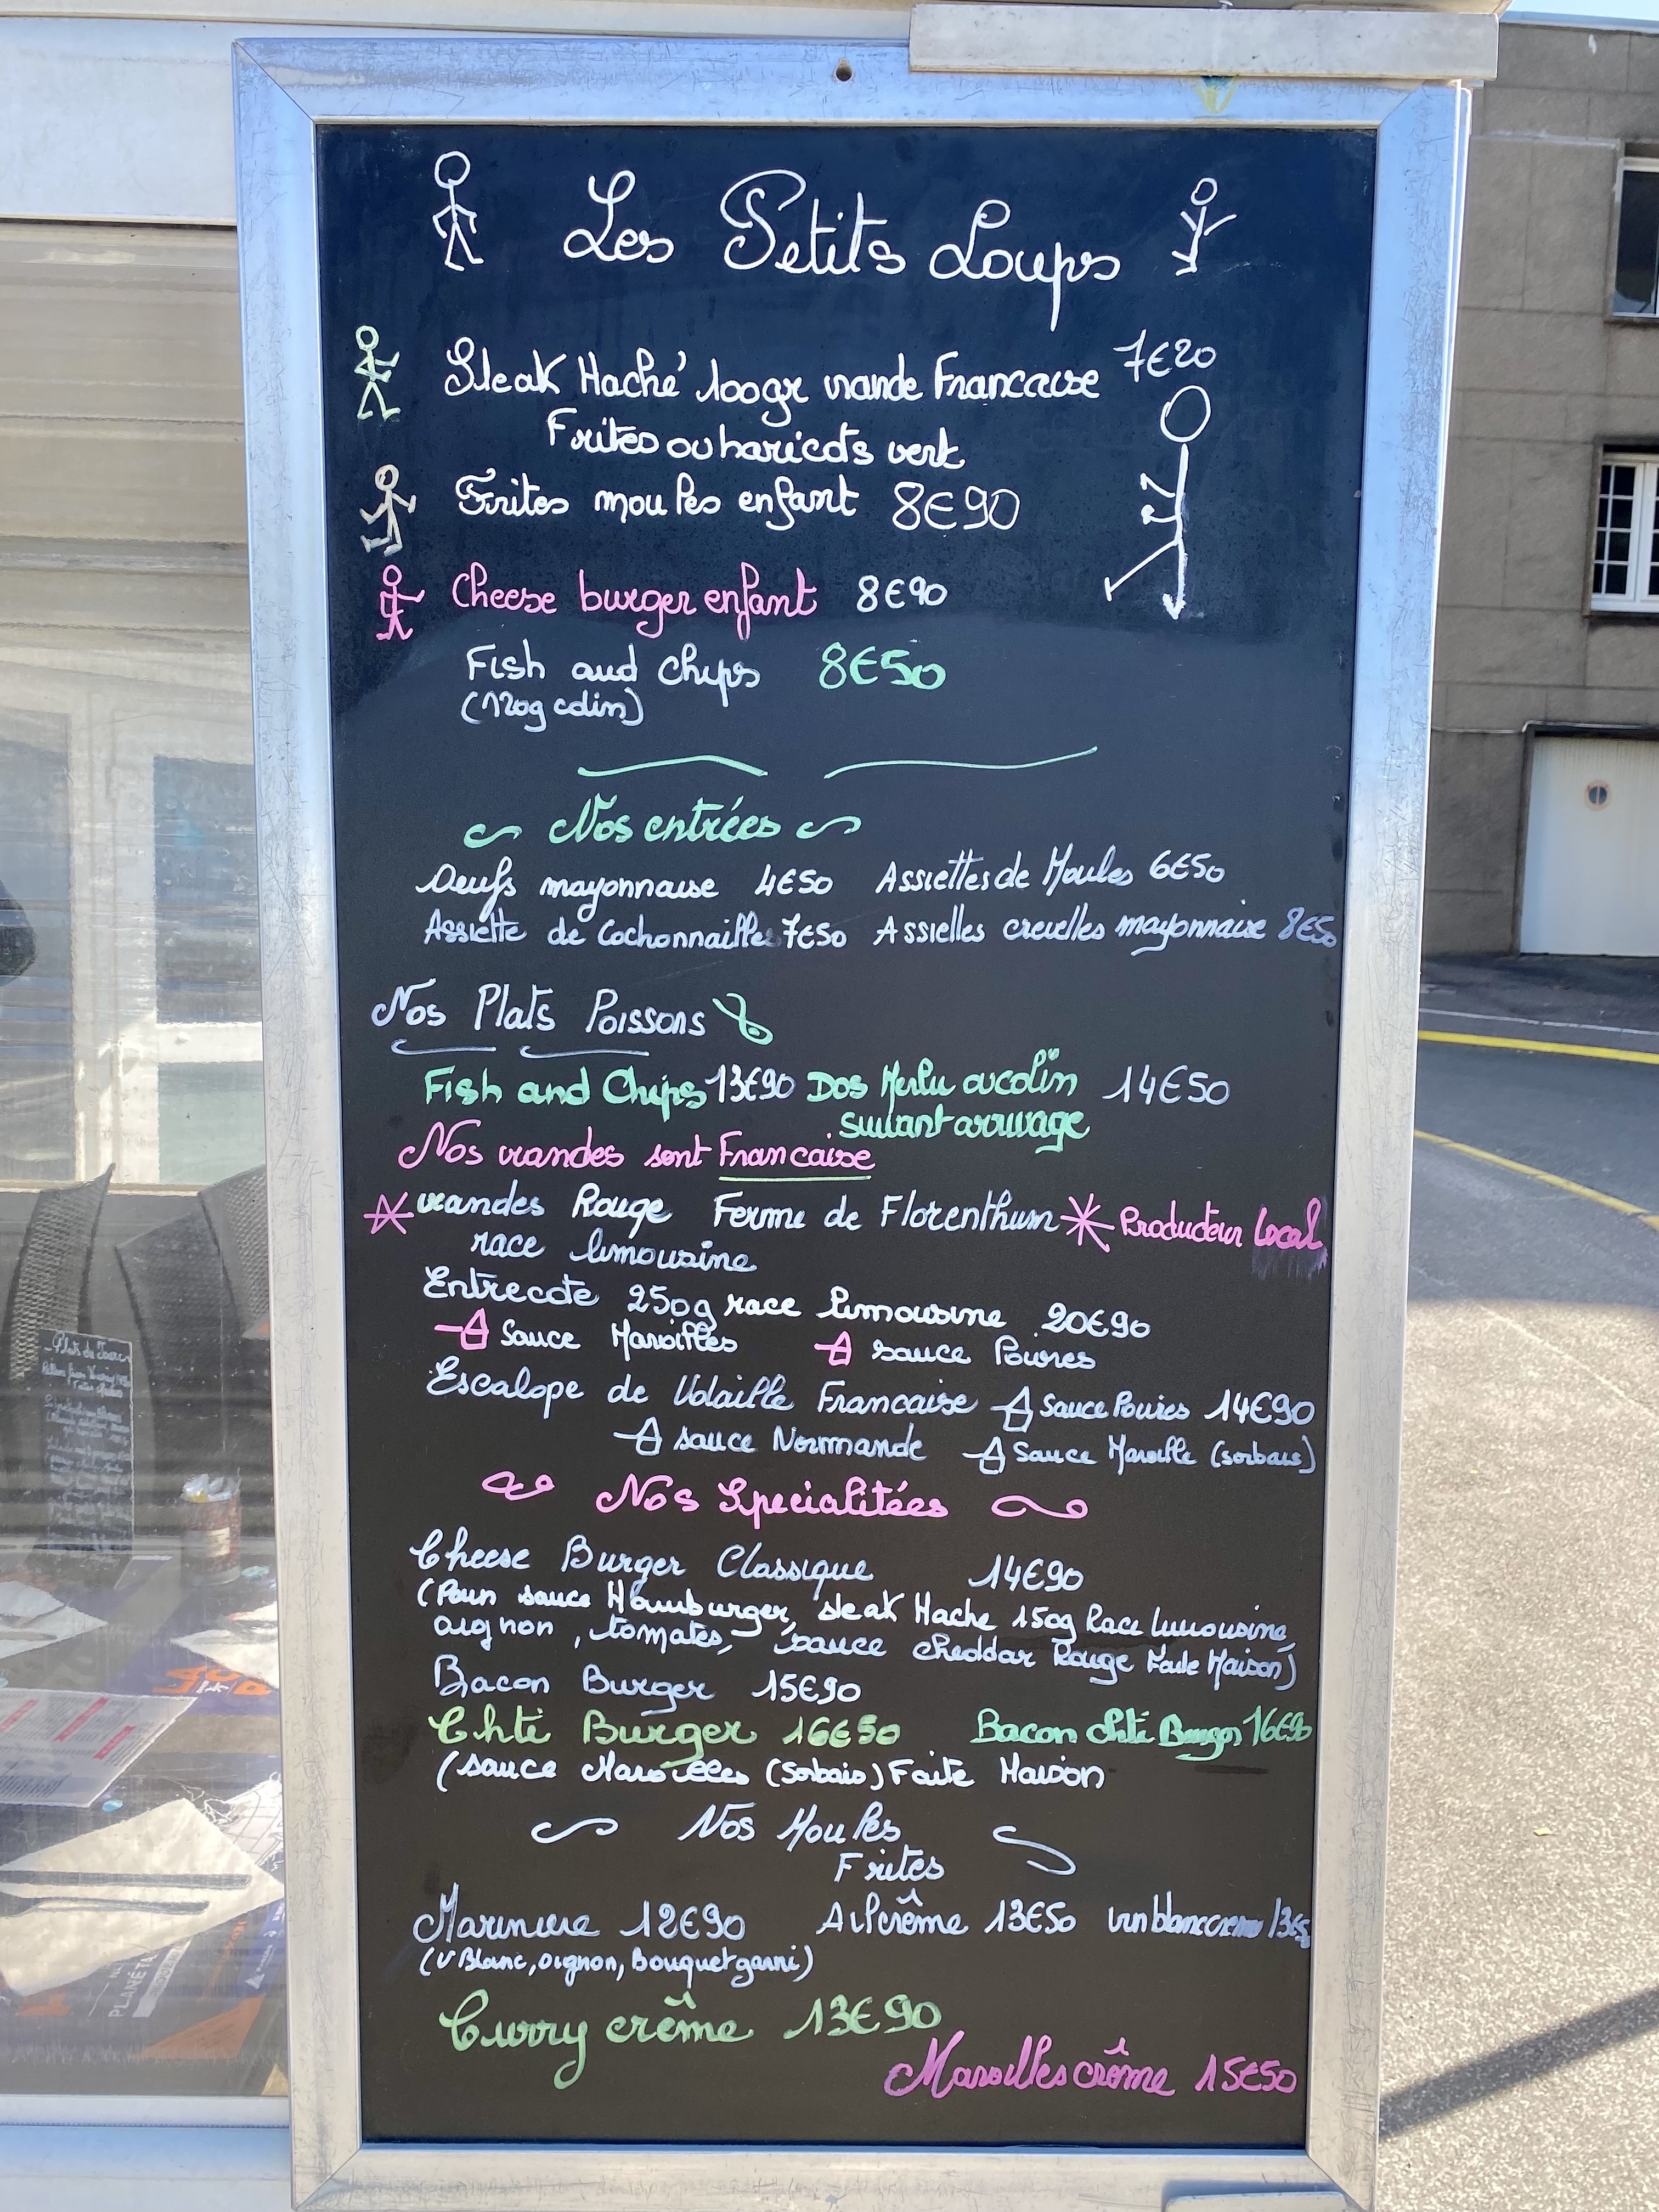 Les Petits Loups
Steak Haché 100gr viande Francaise 7€20
Frites ou haricots vert
Frites moules enfant 8€90
Cheese burger enfant 8€90
Fish and chips 8€50
(120g colin)
Nos entrées
Oeufs mayonnaise 4€50 Assiettes de Moules 6€50
Assiette de Cochonnailles 7€50 Assiettes crevettes mayonnaise 8€50
Nos Plats Poissons
Fish and Chips 13€90 Dos Merlu ou colin 14€50
suivant arrivage
Nos viandes sont Francaise
viandes Rouge Ferme de Florenthum Producteur Local
race limousine
Entrecote 250g race limousine 20€90
Sauce Maroilles sauce Poivres
Escalope de Volaille Francaise Sauce Poivres 14€90
sauce Normande Sauce Maroille (sorbais)
Nos Specialitées
Cheese Burger Classique 14€90
(Pain sauce Hamburger, steak Hache 150g Race limousine,
oignon, tomates, sauce cheddar Rouge Faite Maison)
Bacon Burger 15€90
Chti Burger 16€50 Bacon chti Burger 16€90
(sauce Maroilles (Sorbais) Faite Maison
Nos Moules
Frites
Mariniere 12€90 Ail crême 13€50 vin blanc creme
(V Blanc, oignon, Bouquet garni)
Curry crême 13€90
Maroilles crême 15€50